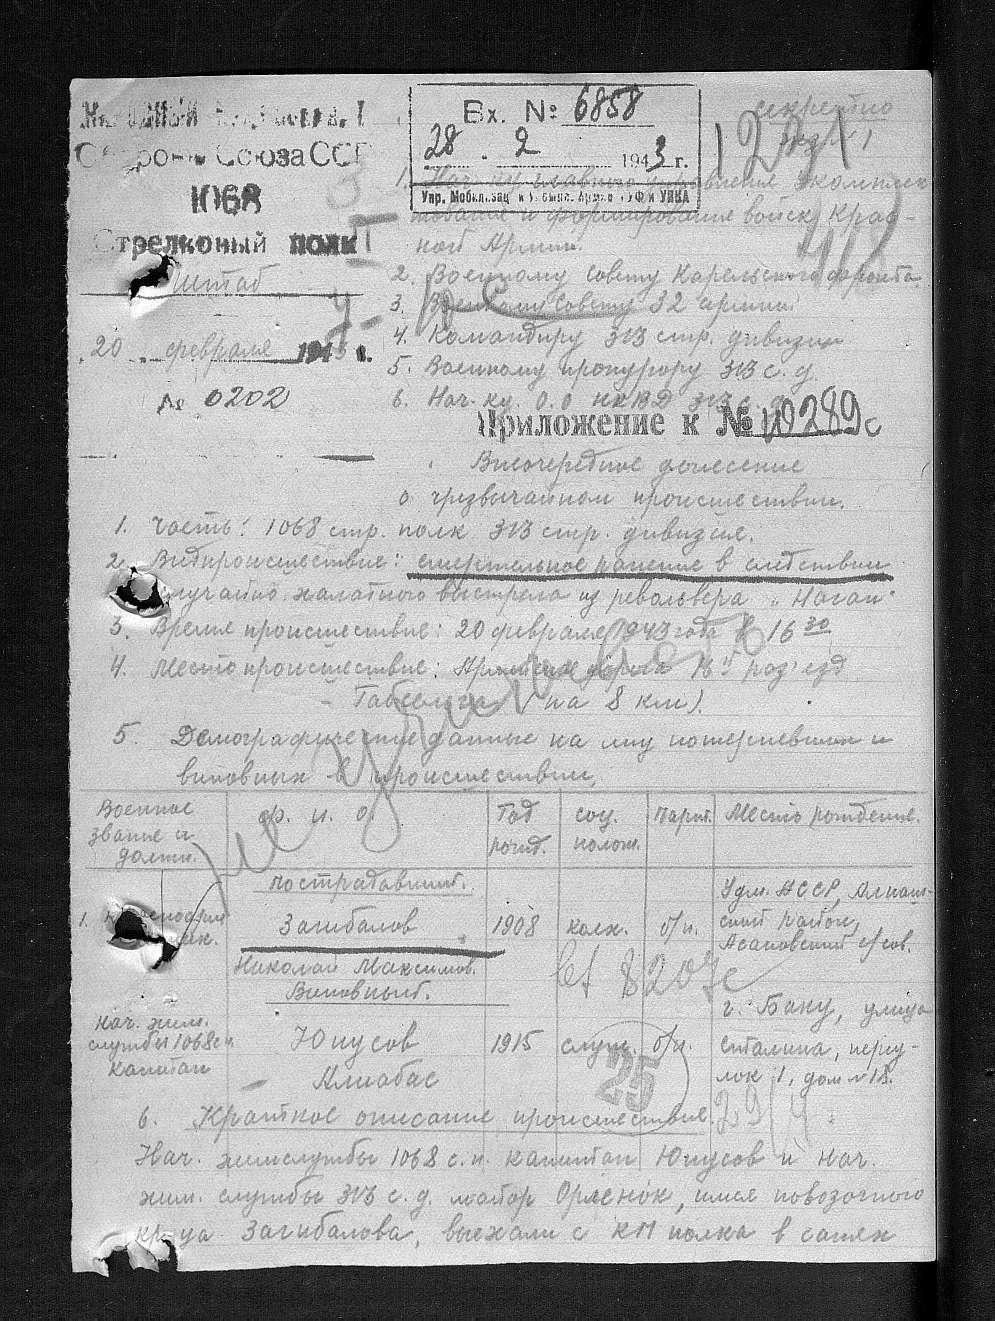 НАРОДНЫЙ
Обороны Союза ССР
1068
Стрелковый полк
Штаб
20 февраля 1943 г.
№ 0202
Вх. № 6858
28. 2 1943 г.
секретно
экз. № 1
1. Нач-ку главного управления укомплек-
тования и формирования войск Крас-
ной Армии.
2. Военному совету Карельского фронта.
3. Военному Совету 32 армии.
4. Командиру 313 стр. дивизии
5. Военному прокурору 313 с. д.
6. Нач-ку О.О НКВД 313 с. д.
Приложение к № 10289с
Внеочередное донесение
о чрезвычайном происшествии.
1. Часть: 1068 стр. полк 313 стр. дивизия.
2. Вид происшествие: смертельное ранение в следствии
случайно халатного выстрела из револьвера „Наган"
3. Время происшествие: 20 февраля 1943 года в 16 30
4. Место происшествие: 18й раз'езд
(на 8 км).
5. Демографические данные на лиц потерпевших и
виновных в происшествии.
Военное звание и должн. Ф. и. о. Год рожд. соц. полож. парт. Место рождение.
пострадавший.
1. Загибалов 1908 колх. б/п. Удм. АССР,
район,
Асановский с/сов.
Николай Максимов.
Виновный.
Нач. хим. службы 1068 с.п. капитан Юнусов Алиабас 1915 служ. б/п. г. Баку, улица
Сталина, переу-
лок 1, дом № 18.
25
6. Краткое описание происшествия.
Нач. химслужбы 1068 с. п. капитан Юнусов и нач.
хим. службы 313 с. д. майор Орленок, имея повозочного
кр-ца Загибалова, выехали с КП полка в санях